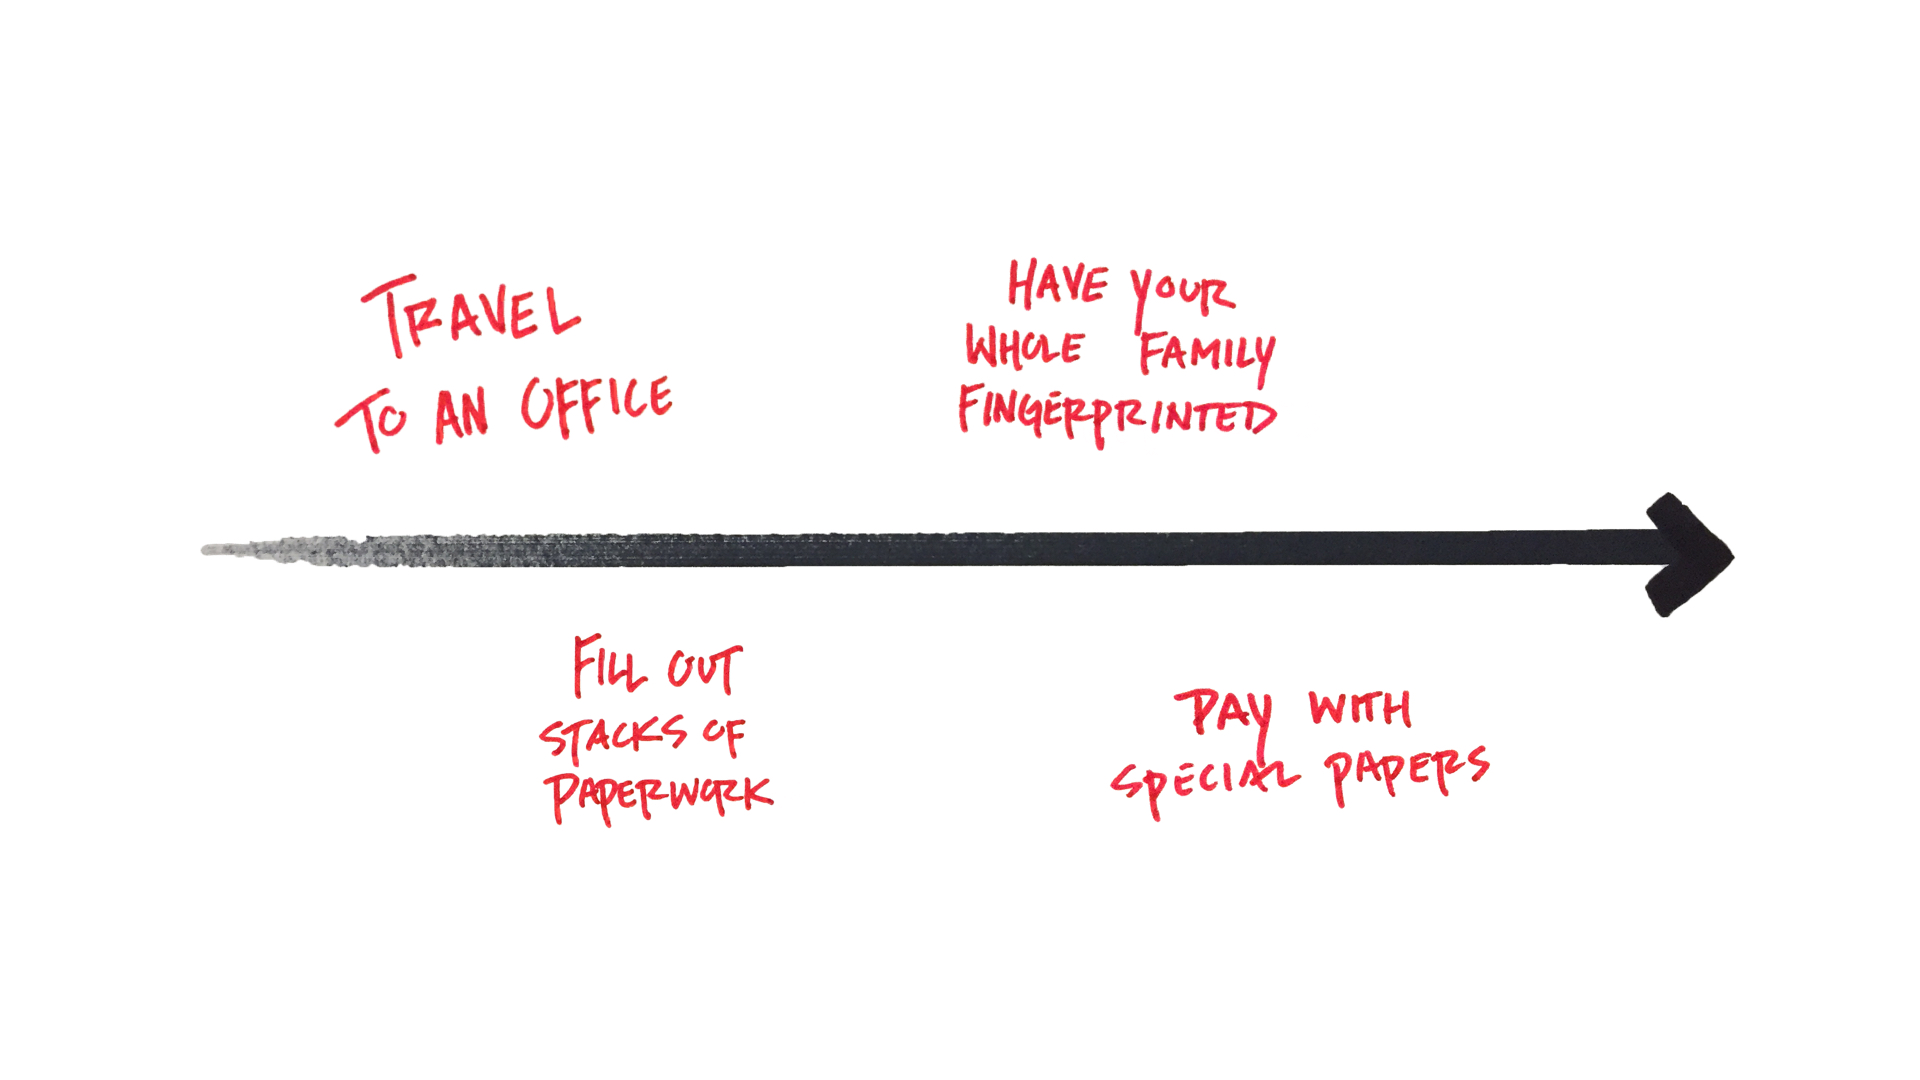 TRAVEL
TO AN OFFICE
FILL OUT
STACKS OF
PAPERWORK
HAVE YOUR
WHOLE FAMILY
FINGERPRINTED
PAY WITH
SPECIAL PAPERS